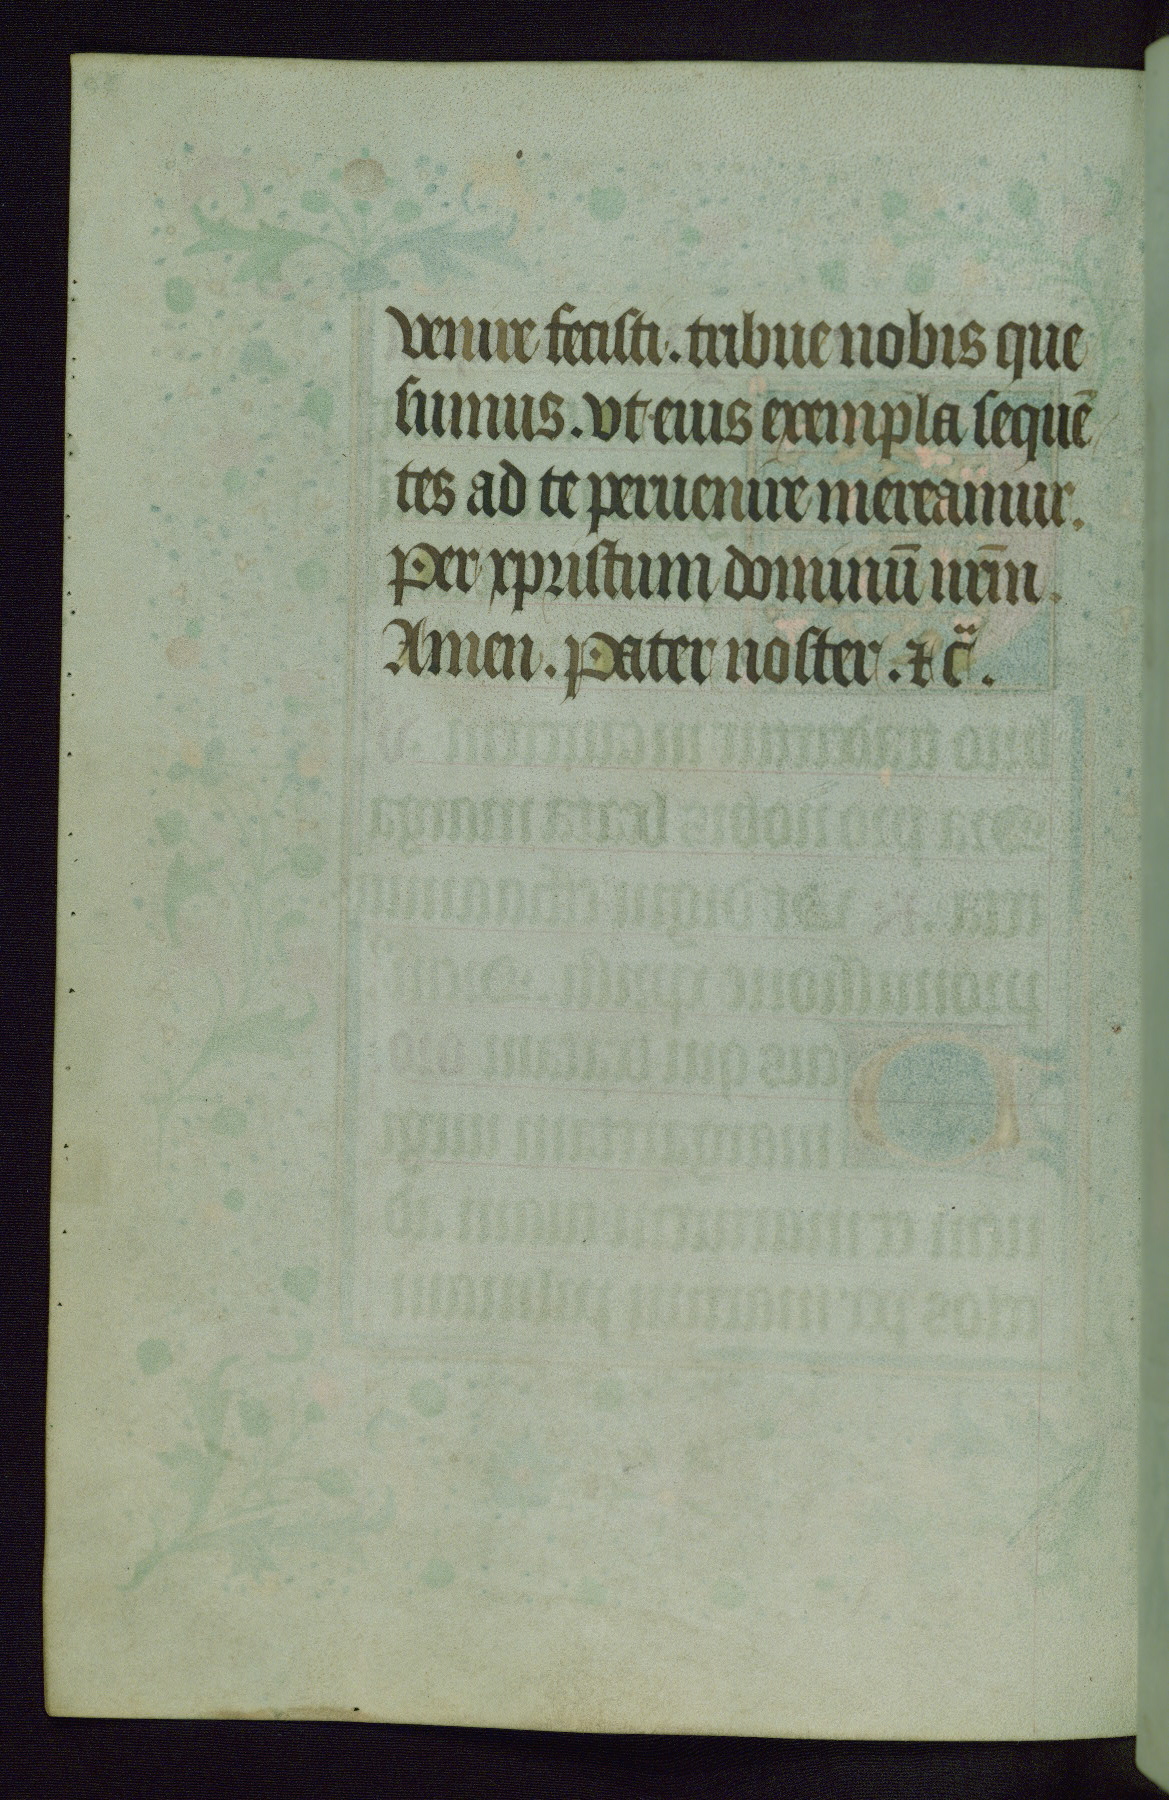 venire fecisti. tribue nobis que
sumus. vt eius exempla sequē
tes ad te peruenire mereamur.
Per xpristum dominū nr̄m.
Amen. Pater noster. ⁊ c̄.